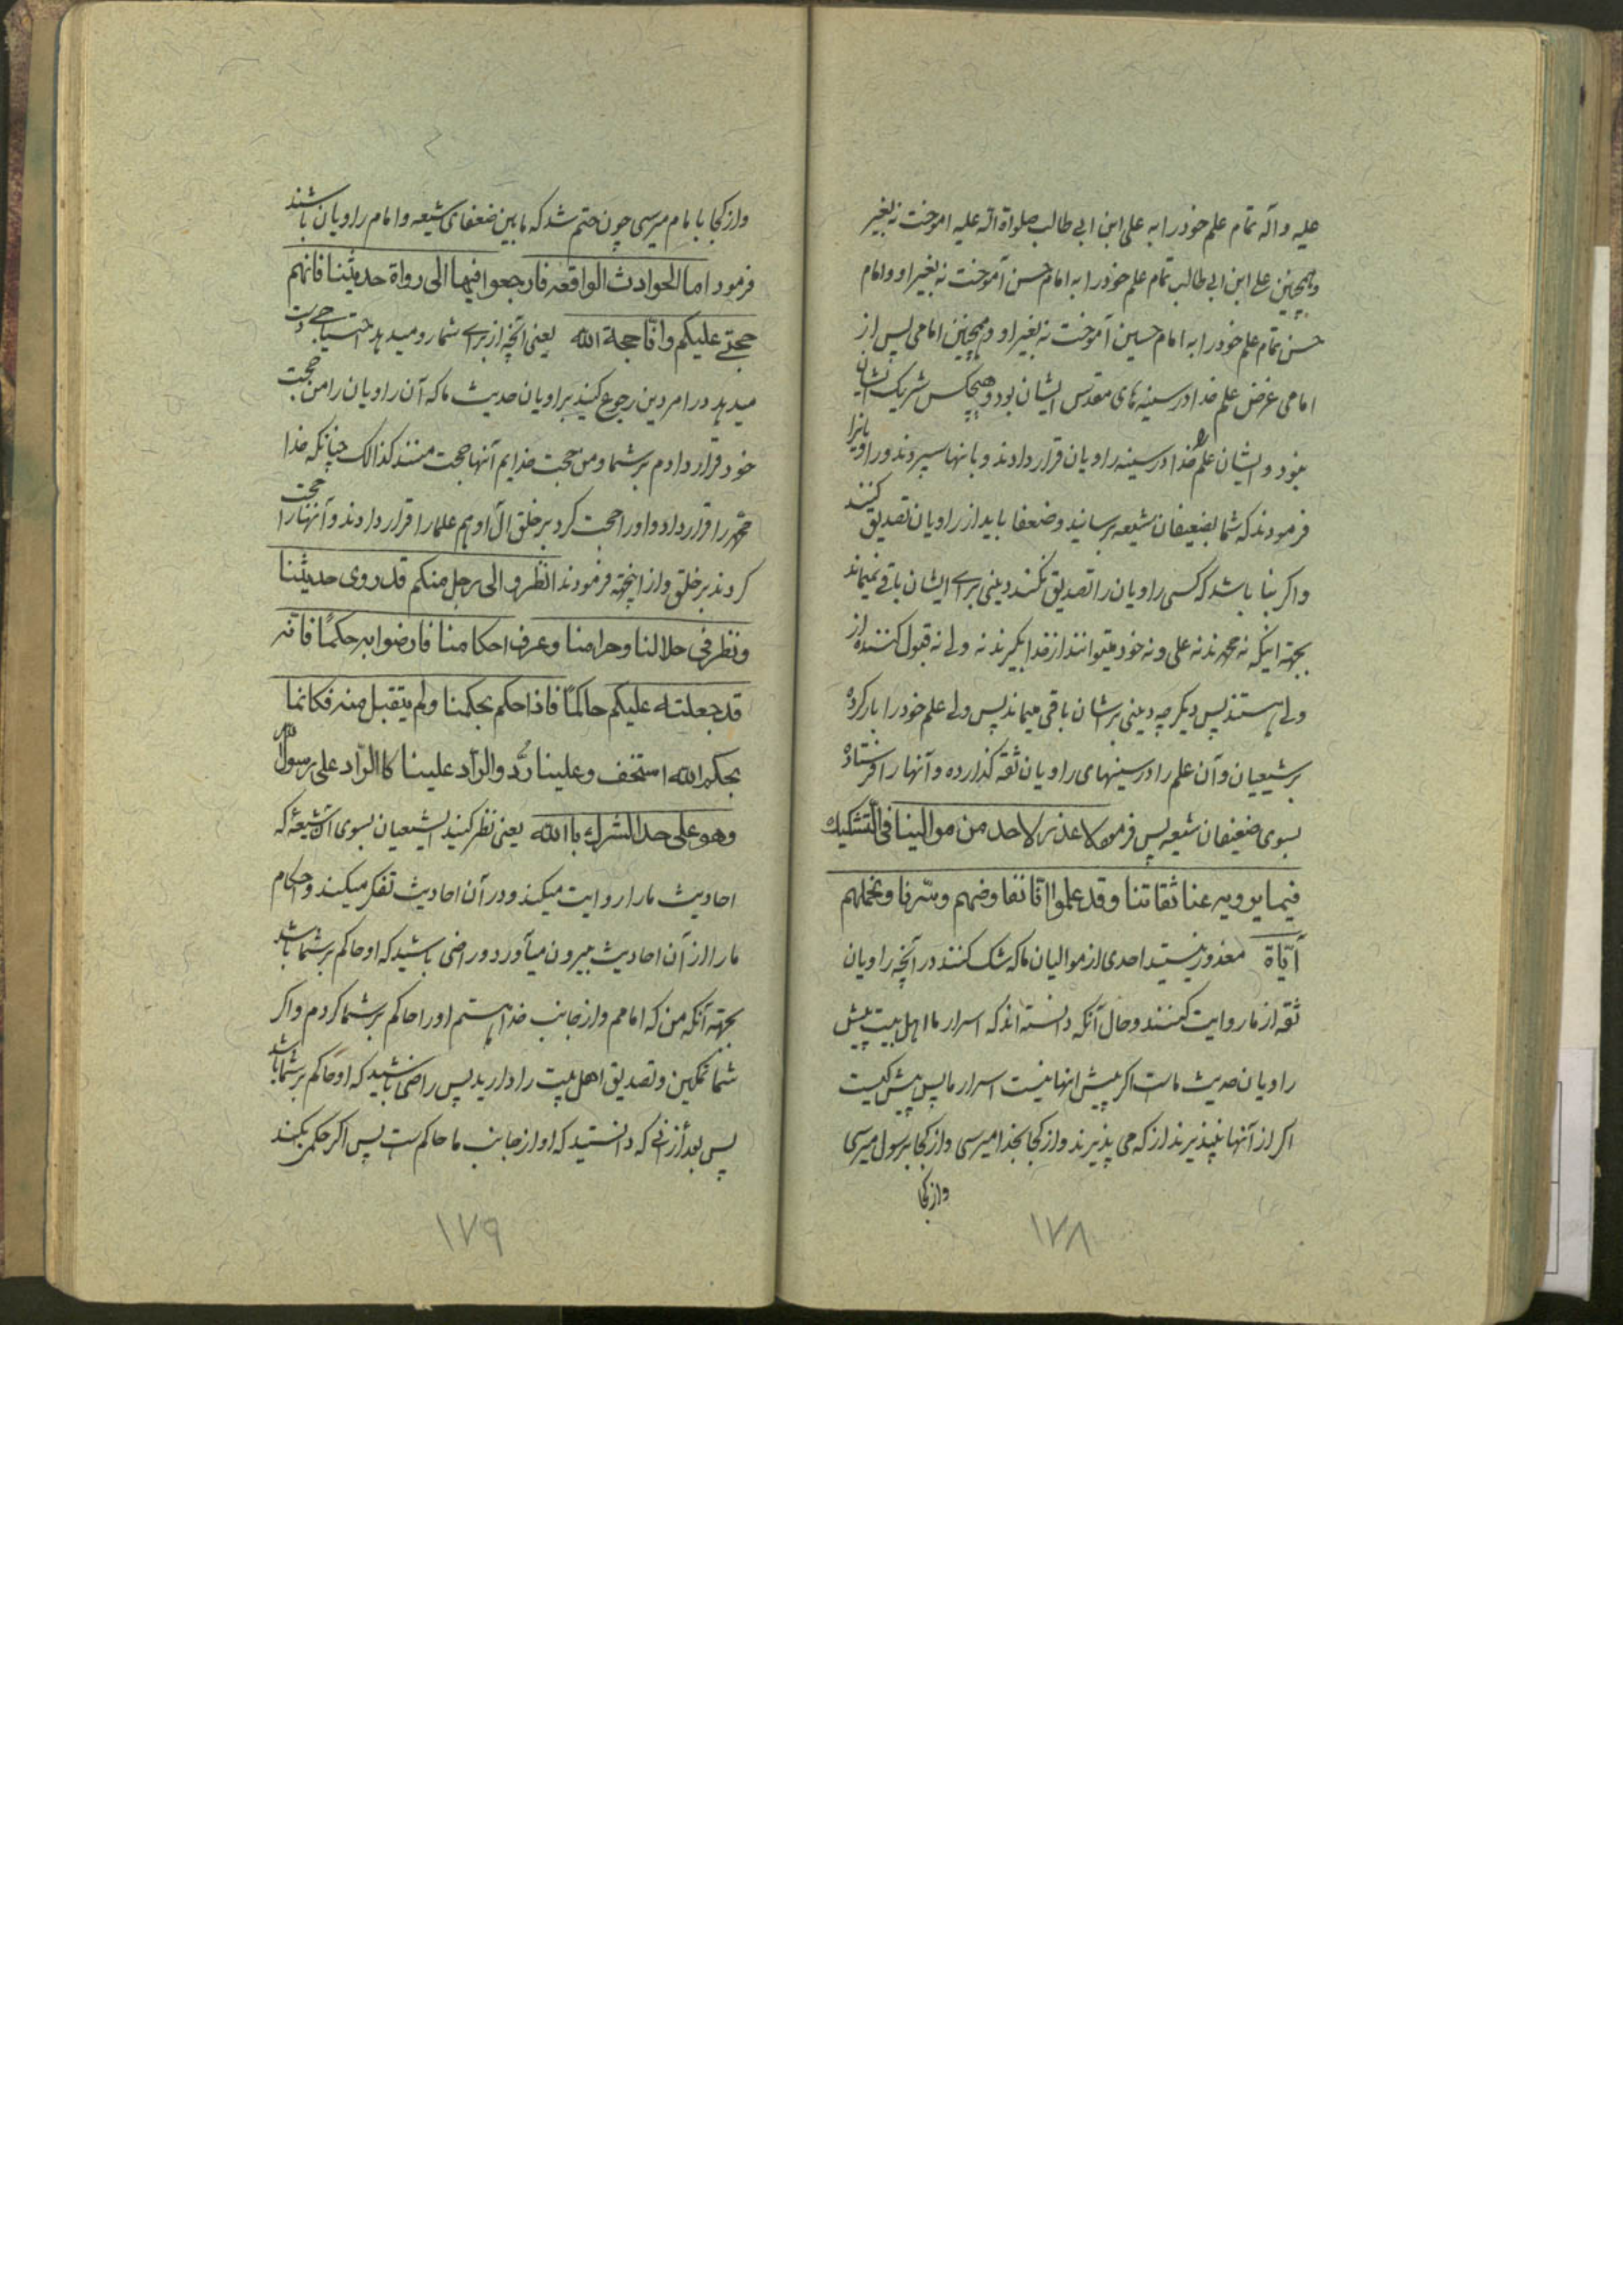 علیه و آله تمام علم خود را به علی ابن ابی طالب صلواة الله علیه اموخت نه بغیر
و همچنین علی ابن ابی طالب تمام علم خود را به امام حسن آموخت نه بغیر او و امام
حسن تمام علم خود را به امام حسین آموخت نه بغیر او و همچنین امامی پس از
امامی غرض علم خدا در سینه های مقدس ایشان بود و هیچکس شریک ایشان
نبود و ایشان علم خدا در سینه راویان قرار دادند و بانها سپردند و راویانرا
فرمودند که شما بضعیفان شیعه برسانید و ضعفا باید از راویان تصدیق کنند
و اکر بنا باشد که کسی راویان را تصدیق نکند دینی برای ایشان باقی نمیماند
بجهة اینکه نه محمدند نه علی و نه خود میتوانند از خدا بگیرند نه ولی نه قبول کننده از
ولی هستند پس دیکر چه دینی برشان باقی میماند پس ولی علم خود را بار کرده
بر شیعیان و آن علم را در سینهای راویان ثقه کذارده و آنها را فرستاده
بسوی ضعیفان شیعه پس فرمود لا عذر لاحد من موالینا فی التشکیک
فیما یرویه عنا ثقاتنا و قد علموا انا نفاوضهم سرنا و نحملهم
آیاه معذور نیستند احدی از موالیان ما که شک کنند در آنچه راویان
ثقه از ما روایت کنند و حال آنکه دانسته اند که اسرار ما اهل بیت پیش
راویان حدیث ماست اکر پیش اینها نیست اسرار ما پس پیش کیست
اکر از آنها نپذیرند از که می پذیرند و از کجا بخدا میرسی و از کجا برسول میرسی
و از کجا
۱۷۸
و از کجا بامام میرسی چون حتم شد که ما بین ضعفای شیعه و امام راویان باشند
فرمود اما الحوادث الواقعه فارجعوا فیها الی رواة حدیثنا فانهم
حجتی علیکم و انا حجة الله یعنی آنچه از برای شما رو میدهد احتیاجی دست
میدهد در امر دین رجوع کنید براویان حدیث ما که آن راویان را من حجت
خود قرار دادم بر شما و من حجت خدایم آنها حجت منند کذالک چنانکه خدا
محمد را قرار داد و او را حجت کرد بر خلق آل او هم علما را قرار دادند و آنها را حجت
کردند بر خلق و از اینجهة فرمودند انظروا الی رجل منکم قد روی حدیثنا
و نظر فی حلالنا و حرامنا و عرف احکامنا فارضوا به حکمًا فانه
قد جعلته علیکم حاکمًا فاذا حکم بحکمنا و لم یتقبل منه فکانما
بحکم الله استخف و علینا رُد و الراد علینا کاالراد علی رسول الله
و هو علی حد الشرک باالله یعنی نظر کنید ایشیعیان بسوی آن شیعهٔ که
احادیث ما را روایت میکند و در آن احادیث تفکر میکند و احکام
ما را از آن احادیث بیرون میآورد و راضی باشید که او حاکم بر شما باشد
بجهة آنکه من که امامم و از جانب خدا هستم او را حاکم بر شما کردم و اکر
شما تمکین و تصدیق اهل بیت را دارید پس راضی باشید که او حاکم بر شما باشد
پس بعد از آنی که دانستید که او از جانب ما حاکم ست پس اکر حکمی بکند
۱۷۹